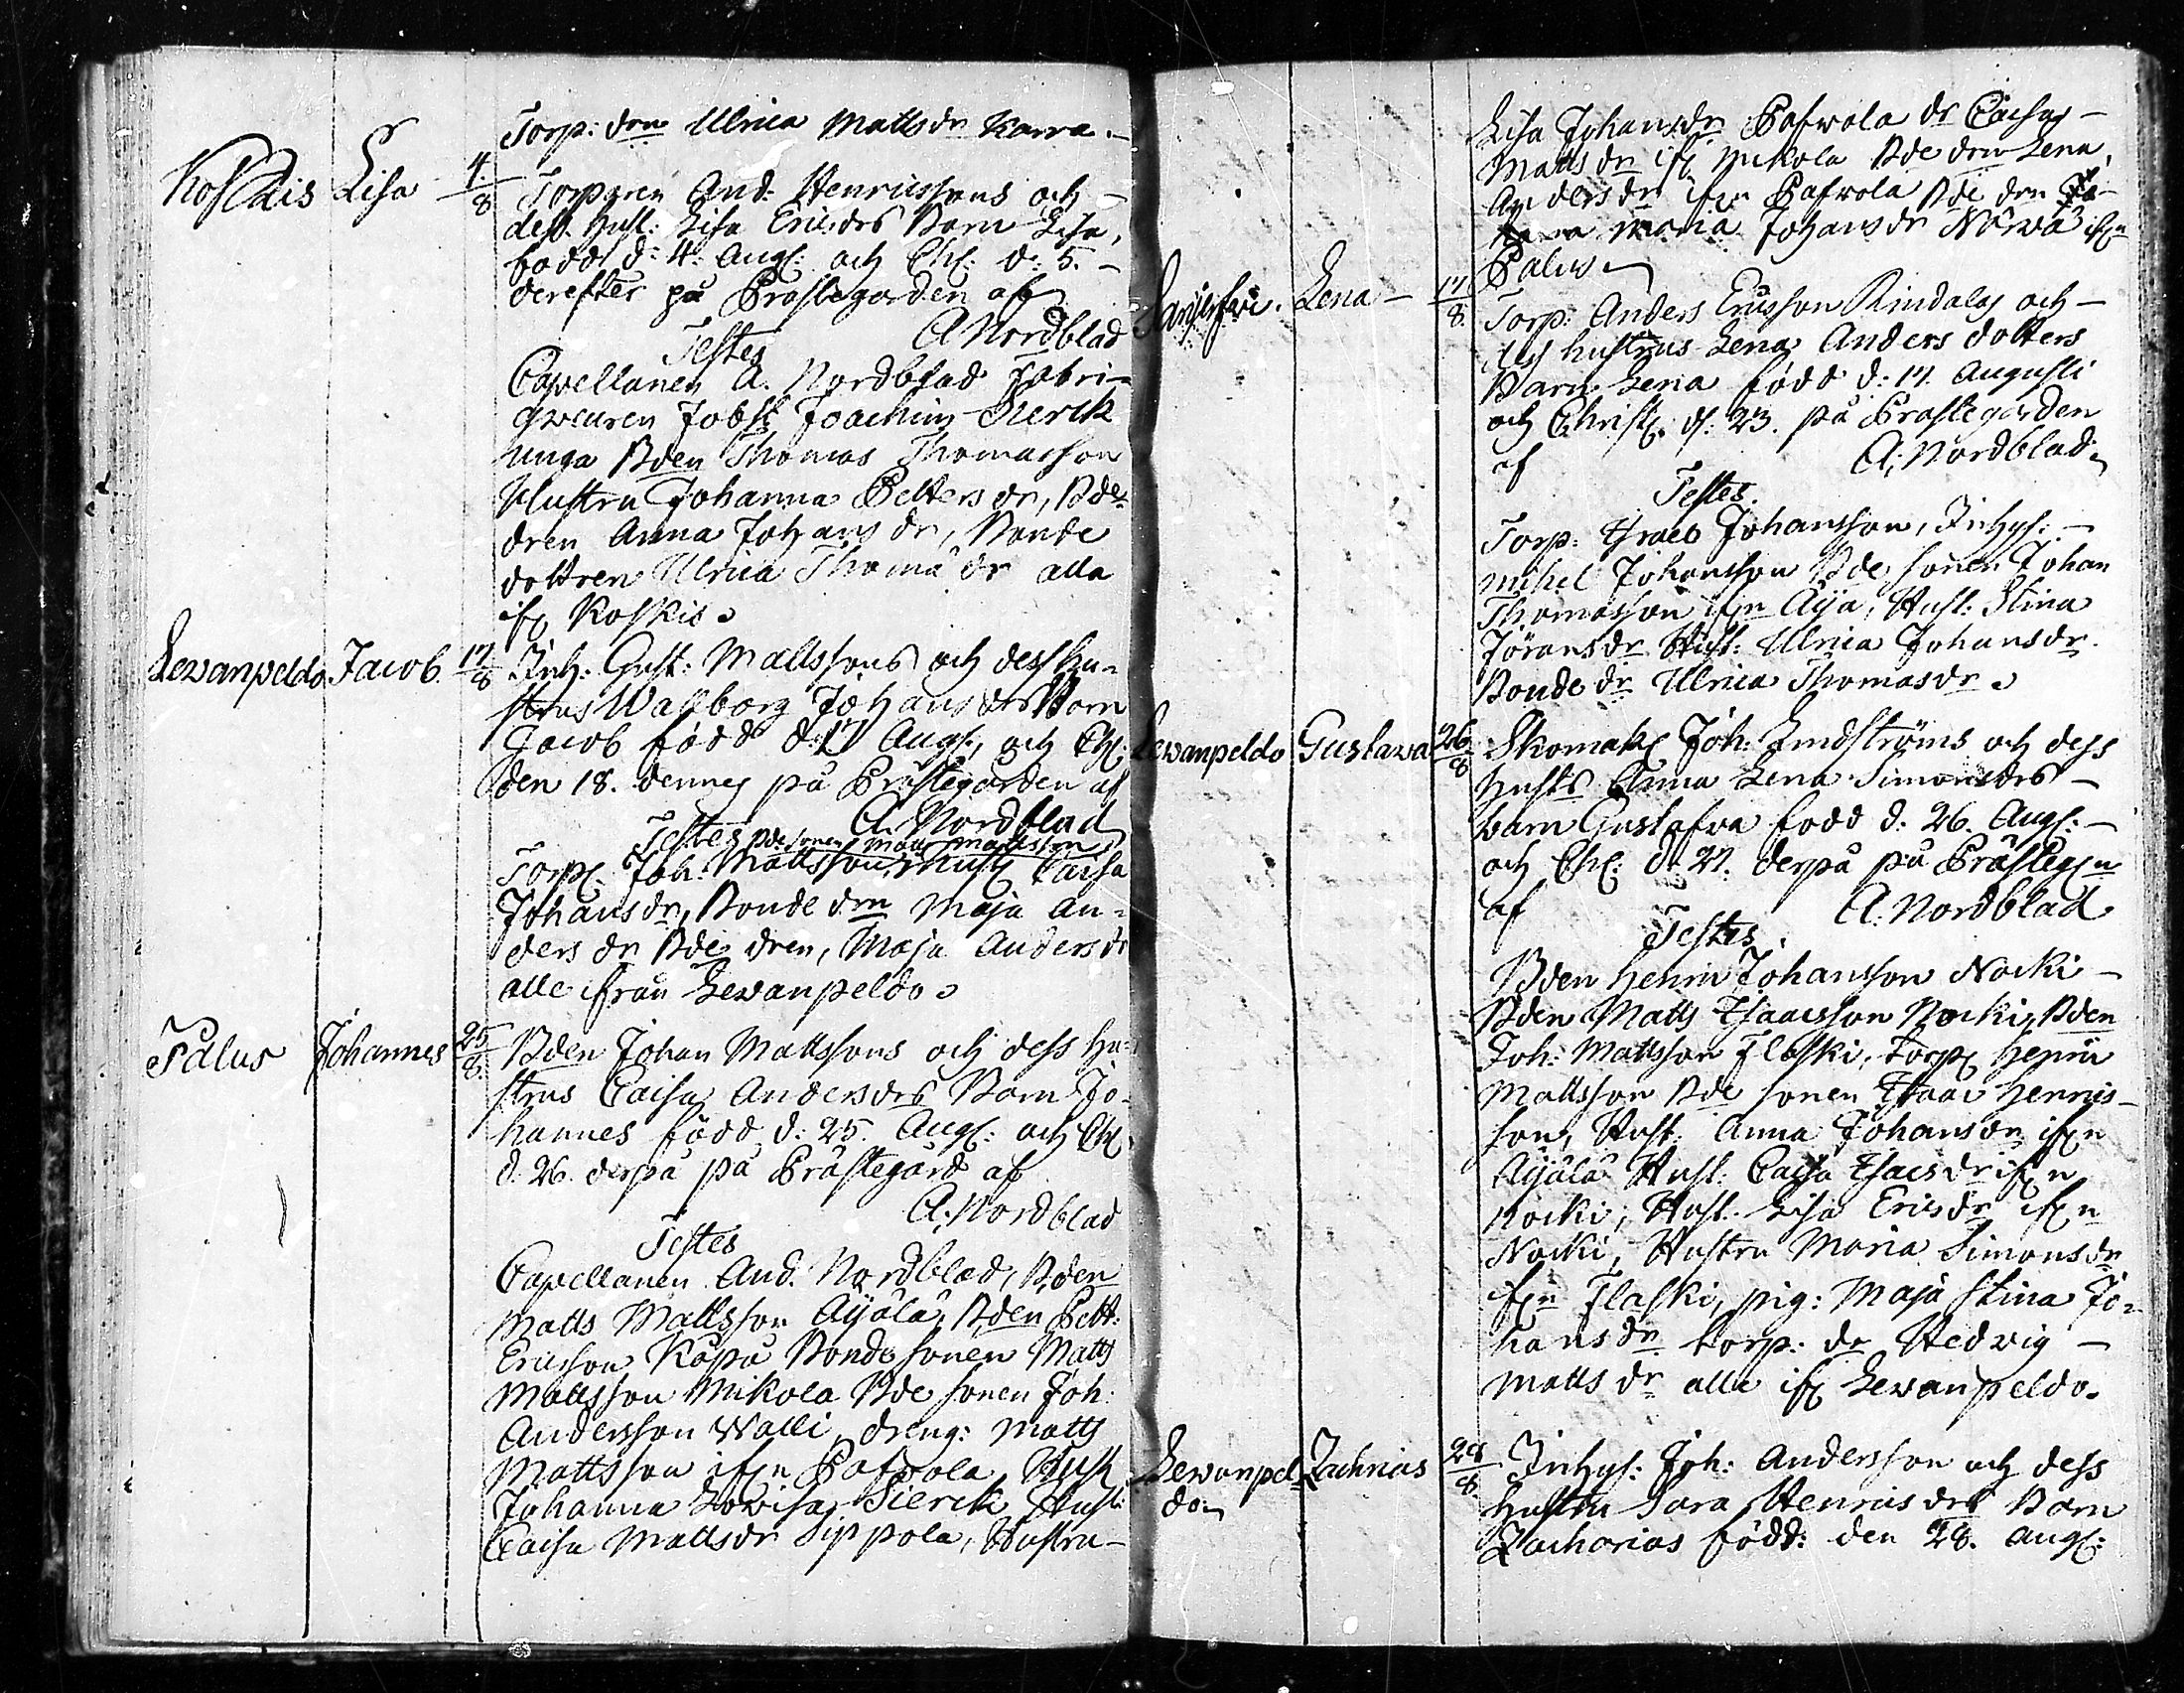 Torp: drn Ulrica Mattsdr Karra.
Koskis Lisa 4/8 Torparen And: Henricssons och
dess Hust: Lisa Ericsdrs Barn Lisa,
född d: 4. Aug: och Chr: d: 5.
derefter på Prästegården af
A Nordblad
Testes
Capellanen A. Nordblad Fabri-
queuren Jobst Joachim Sierck
unga Bden Thomas Thomasson
Hustru Johanna Pettersdr, Bde
dren Anna Johansdr, Bonde
dottren Ulrica Thomædr alla
ifr Koskis
Lewanpeldo Jacob 17/8 Inh: Gust: Mattssons och dess hu-
strus Walborg Johansdrs Barn
Jacob född d: 17 Aug:, och Chr:
den 18. dennes på Prästegården af
A. Nordblad
Testes Bdesonen Matts Mattsson
Torp: Joh: Mattsson, Hust: Caisa
Johansdr, Bonde drn Maja An-
dersdr Bde dren, Maja Andersdr
alle ifrån Lewanpeldo
Palus Johannes 25/8 Bden Johan Mattssons och dess hu-
strus Caisa Andersdrs Barn Jo-
hannes född d: 25. Aug: och Chr
d. 26. derpå på Prästegård af
A. Nordblad
Testes
Capellanen And. Nordblad, Bden
Matts Mattsson Äyälä, Bden Pett:
Ericsson Käpä Bonde sonen Matts
Mattsson Mikola Bde sonen Joh:
Andersson Walli, dreng: Matts
Mattsson ifrn Pafwola Hust
Johanna Lovisa Sierck Hust:
Caisa Mattsdr Sippola, Hustru
Lisa Johansdr Pafwola dr Caisa
Mattsdr ifr Mikola Bde drn Lena
Andersdr ifrn Pafwola Bde drn
Maria Johansdr Nårwä ifrn
Palus
Lena 17/8 Torp: Anders Ericsson Rindalas och
dess hustrus Lena Anders dotters
Barn Lena född d: 17. Augusti
och Christ: d: 23. på Prästegården
af A: Nordblad
Testes.
Torp: Israel Johansson, Inhys:
Mihel Johansson Bde sonen Johan
Thomasson ifrn Äijä, Hust: Stina
Jöransdr Hust: Ulrica Johansdr
Bonde dr Ulrica Thomasdr
Lewanpeldo Gustawa 26/8 Skomak: Joh: Lindströms och dess
Husts Anna Lena Simonsdrs
barn Gustafva född d. 26. Aug:
och Chr: d: 27. derpå på Prästeg:n
af A. Nordblad
Testes.
Bden Henric Johansson Nocki
Bden Matts Isaacsson Nocki, Bden
Joh: Mattsson Flaski, Torp: Henric
Mattsson Bde sonen Isaac Henrics-
son, Hust: Anna Johansdr ifrn
Äyälä Hust: Caisa Isacsdr ifrn
Nocki, Hust: Lisa Ericsdr ifrn
Nocki, Hustru Maria Simonsdr
ifrn Flaski, pig: Maja Stina Jo-
hansdr torp: dr Hedwig
Mattsdr alla ifr Lewanpeldo.
Lewanpel- Zachrias 28/8 Inhys: Joh: Andersson och dess
do. hustru Sara Henricsdrs Barn
Zacharias född: den 28. Aug: